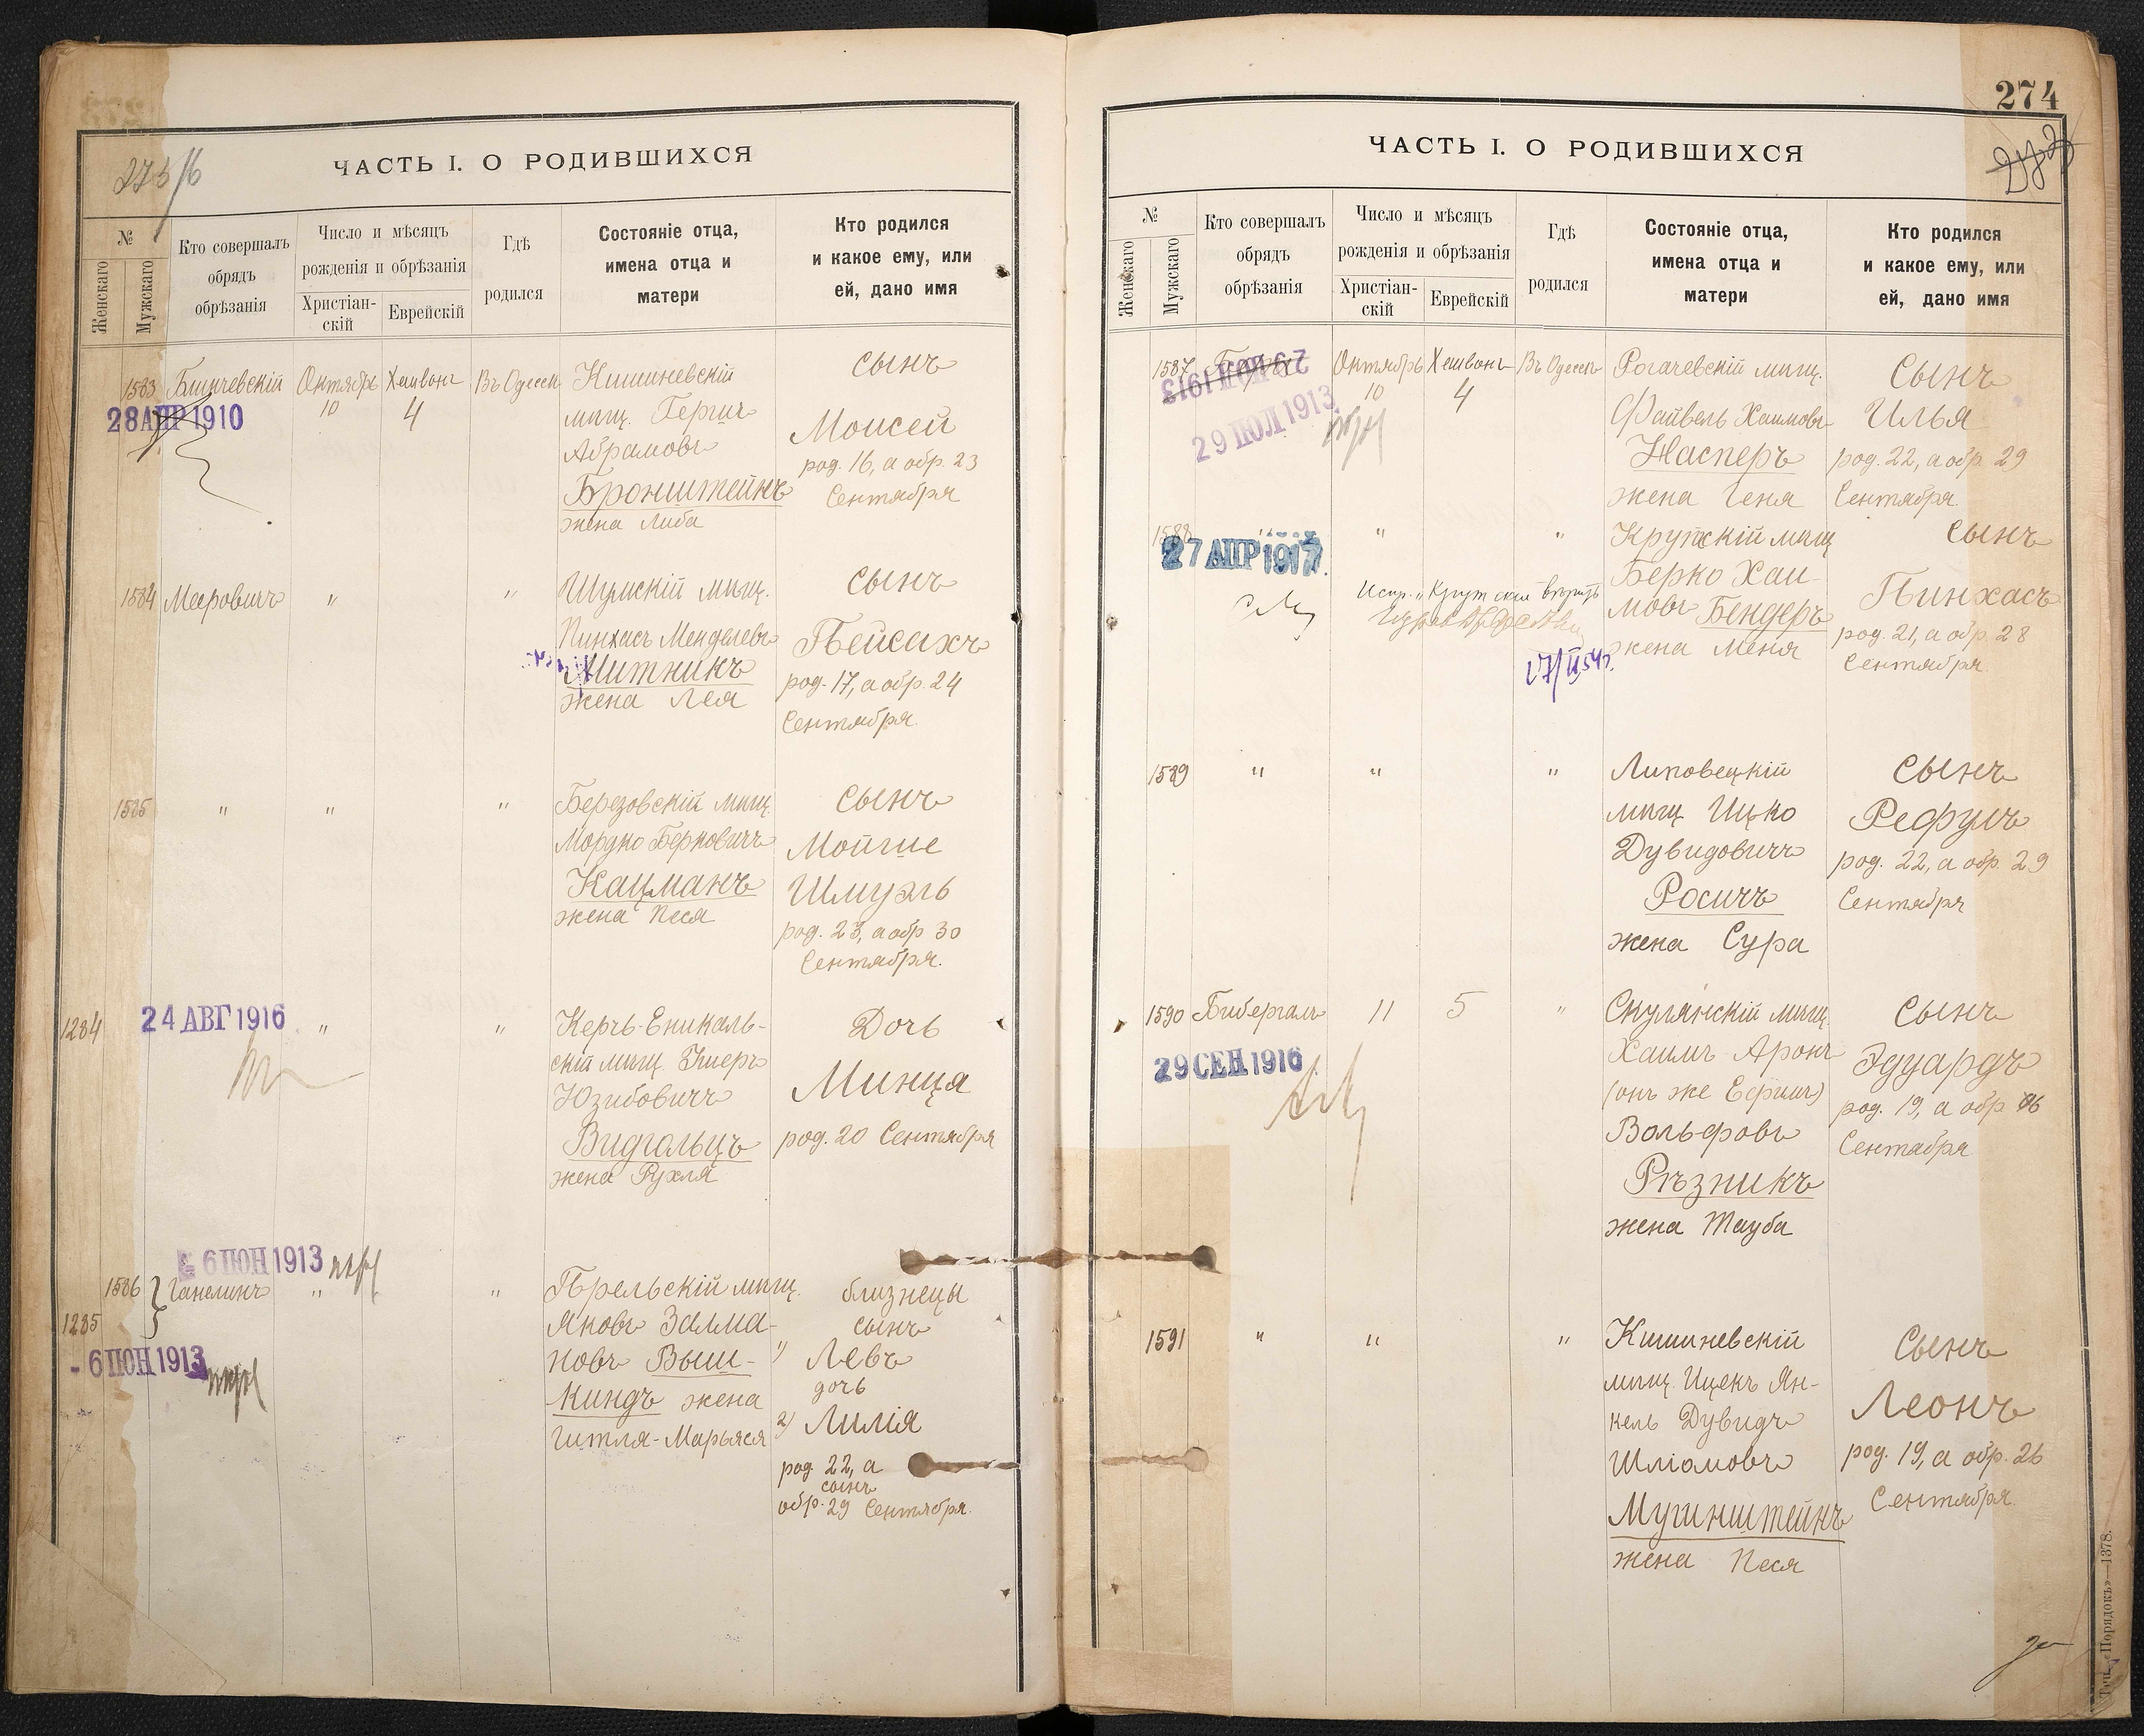 ЧАСТЬ I. О РОДИВШИХСЯ
№
Женскаго
Мужскаго
Кто совершалъ
обрядъ
обрѣзанія
Число и мѣсяцъ
рожденія и обрѣзанія
Христіан-
скій
Еврейскій
Гдѣ
родился
Состояніе отца,
имена отца и
матери
Кто родился
и какое ему, или
ей, дано имя
1583
28 АПР 1910
Октябрь
10
Хешвонъ
4
Въ Одессѣ
Кишиневскій
мѣщ. Гершъ
Абрамовъ
Бронштейнъ
жена Либа
сынъ
Моисей
род. 16, а обр. 23
Сентября
1584
Мееровичъ
"
"
Шумскій мѣщ.
Пинхасъ Менделевъ
Митникъ
жена Лея
сынъ
Пейсахъ
род. 17, а обр. 24
Сентября.
1585
"
"
"
Березовскій мѣщ.
Мордко Берковичъ
Кацманъ
жена Песя
сынъ
Мойше
Шмуэль
род. 23, а обр 30
Сентября.
1284
24 АВГ 1916
"
"
Керчь-Еникаль-
скій мѣщ.
Юзибовичъ
Видгольцъ
жена Рухля
Дочь
Минца
род. 20 Сентября
6 ІЮН 1913
1586
1285
Ганелинъ
"
"
- 6 ІЮН 1913
мѣщ.
Яковъ Залма-
новъ Выш-
киндъ жена
Гитля-Марьяся
близнецы
сынъ
1) Левъ
дочь
2) Лилія
род. 22, а
сынъ
обр. 29 Сентября.
274
ЧАСТЬ I. О РОДИВШИХСЯ
№
Женскаго
Мужскаго
Кто совершалъ
обрядъ
обрѣзанія
Число и мѣсяцъ
рожденія и обрѣзанія
Христіан-
скій
Еврейскій
Гдѣ
родился
Состояніе отца,
имена отца и
матери
Кто родился
и какое ему, или
ей, дано имя
1587
29 ІЮЛ 1913
29 ІЮЛ 1913
Октябрь
10
Хешвонъ
4
Въ Одессѣ
Рогачевскій мѣщ.
Файвель Хаимовъ
Насперъ
жена Геня
Сынъ
Илья
род. 22, а обр. 29
Сентября.
1588
27 АПР 1917
"
"
Крутскій мѣщ
Берко Хаи-
мовъ Бендеръ
жена Меня
сынъ
Пинхасъ
род. 21, а обр. 28
Сентября
1589
"
"
"
Липовецкій
мѣщ Ицко
Дувидовичъ
Росичъ
жена Сура
сынъ
Рефулъ
род. 22, а обр. 29
Сентября
1590
Бибергалъ
11
5
"
29 СЕН 1916
Скулянскій мѣщ.
Хаимъ-Аронъ
Вольфовъ
Рѣзникъ
жена Тауба
сынъ
Эдуардъ
род. 19, а обр. 26
Сентября
1591
"
"
"
Кишиневскій
мѣщ. Ицекъ Ян-
кель Дувидъ
Шліомовъ
Мугинштейнъ
жена Песя
Сынъ
Леонъ
род. 19, а обр. 26
Сентября.
Тип. «Порядокъ»—1378.